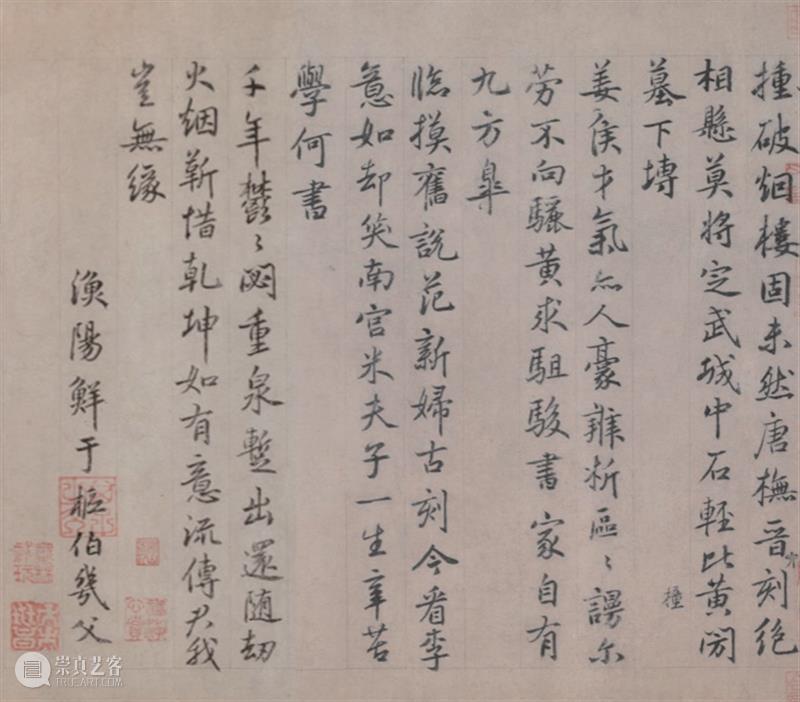 揰破烟樓固未然唐橅晋刻絶
相懸莫將定武城中石輕比黄閍
墓下塼
撞
姜侯才氣亦人豪辨析區〻謾尔
勞不向驪黄求駔駿書家自有
九方臯
臨摸舊説范新婦古刻今看李
意如却笑南宫米夫子一生辛苦
學何書
千年鬱〻閟重泉暫出還随劫
火烟靳惜乾坤如有意流傳君我
豈無緣
漁陽鮮于樞伯幾父
崇真艺客
WWW.TRUEART.COM